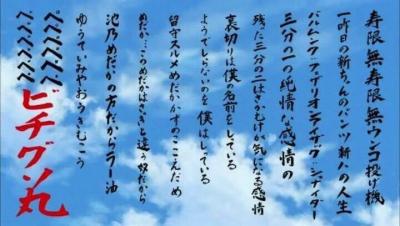 寿限無寿限無ウンコ投げ機
一昨日の新ちゃんのパンツ新八の人生
バルムンク=フェザリオンアイザック=シュナイダー
三分の一の純情な感情の
残った三分の二はさかむけが気になる感情
裏切りは僕の名前をしっている
ようでしらないのを僕はしっている
留守スルメめだかかずのここえだめ
めだか…このめだかはさっきと違う奴だから
池乃めだかの方だからラー油
ゆうていみやおうきむこう
ビチグソ丸